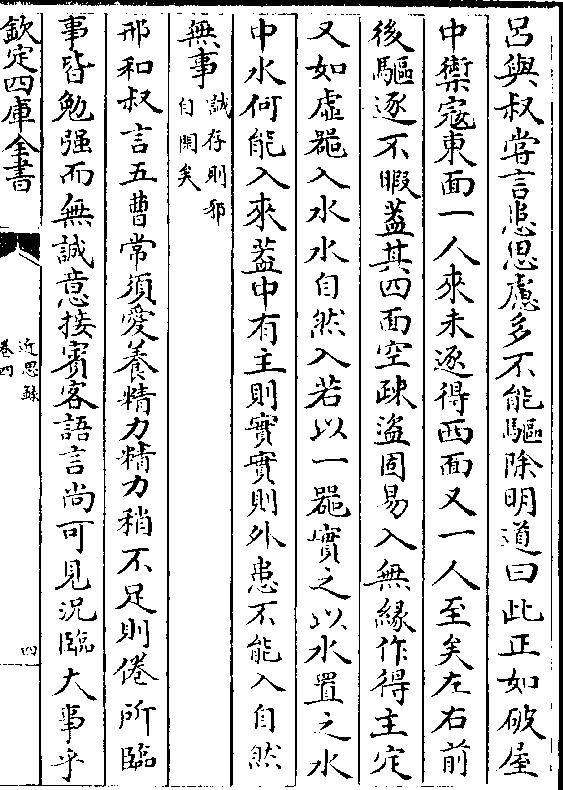 呂與叔嘗言患思慮多不能驅除明道曰此正如破屋
中禦寇東面一人來未逐得西面又一人至矣左右前
後驅逐不暇蓋其四面空疎盜固易入無緣作得主定
又如虛器入水水自然入若以一器實之以水置之水
中水何能入來蓋中有主則實實則外患不能入自然
無事誠存則邪自閑矣
邢和叔言吾曹常須愛養精力精力稍不足則倦所臨
事皆勉强而無誠意接賓客語言尚可見況臨大事乎
欽定四庫全書
近思錄
卷四
四